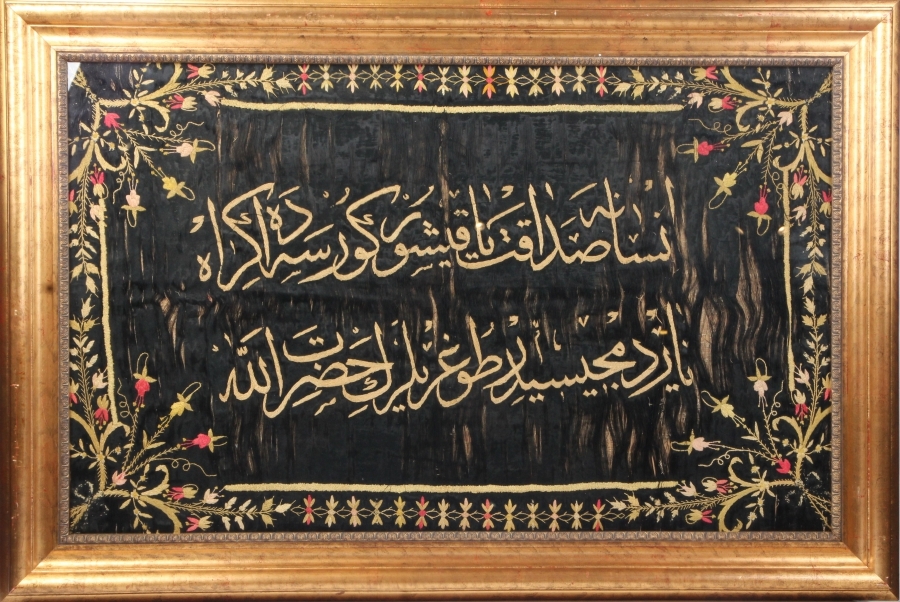 انسانه صداقت ياقيشور كورسه ده اكراه
ياردمجيسيدر طوغريلرك حضرت الله